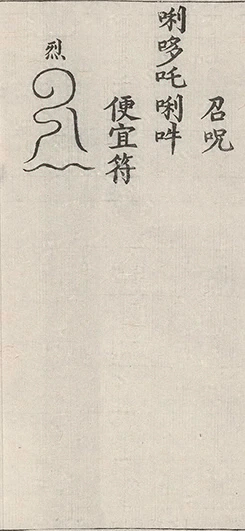 召呪
唎哆吒唎吽
便宜符
烈